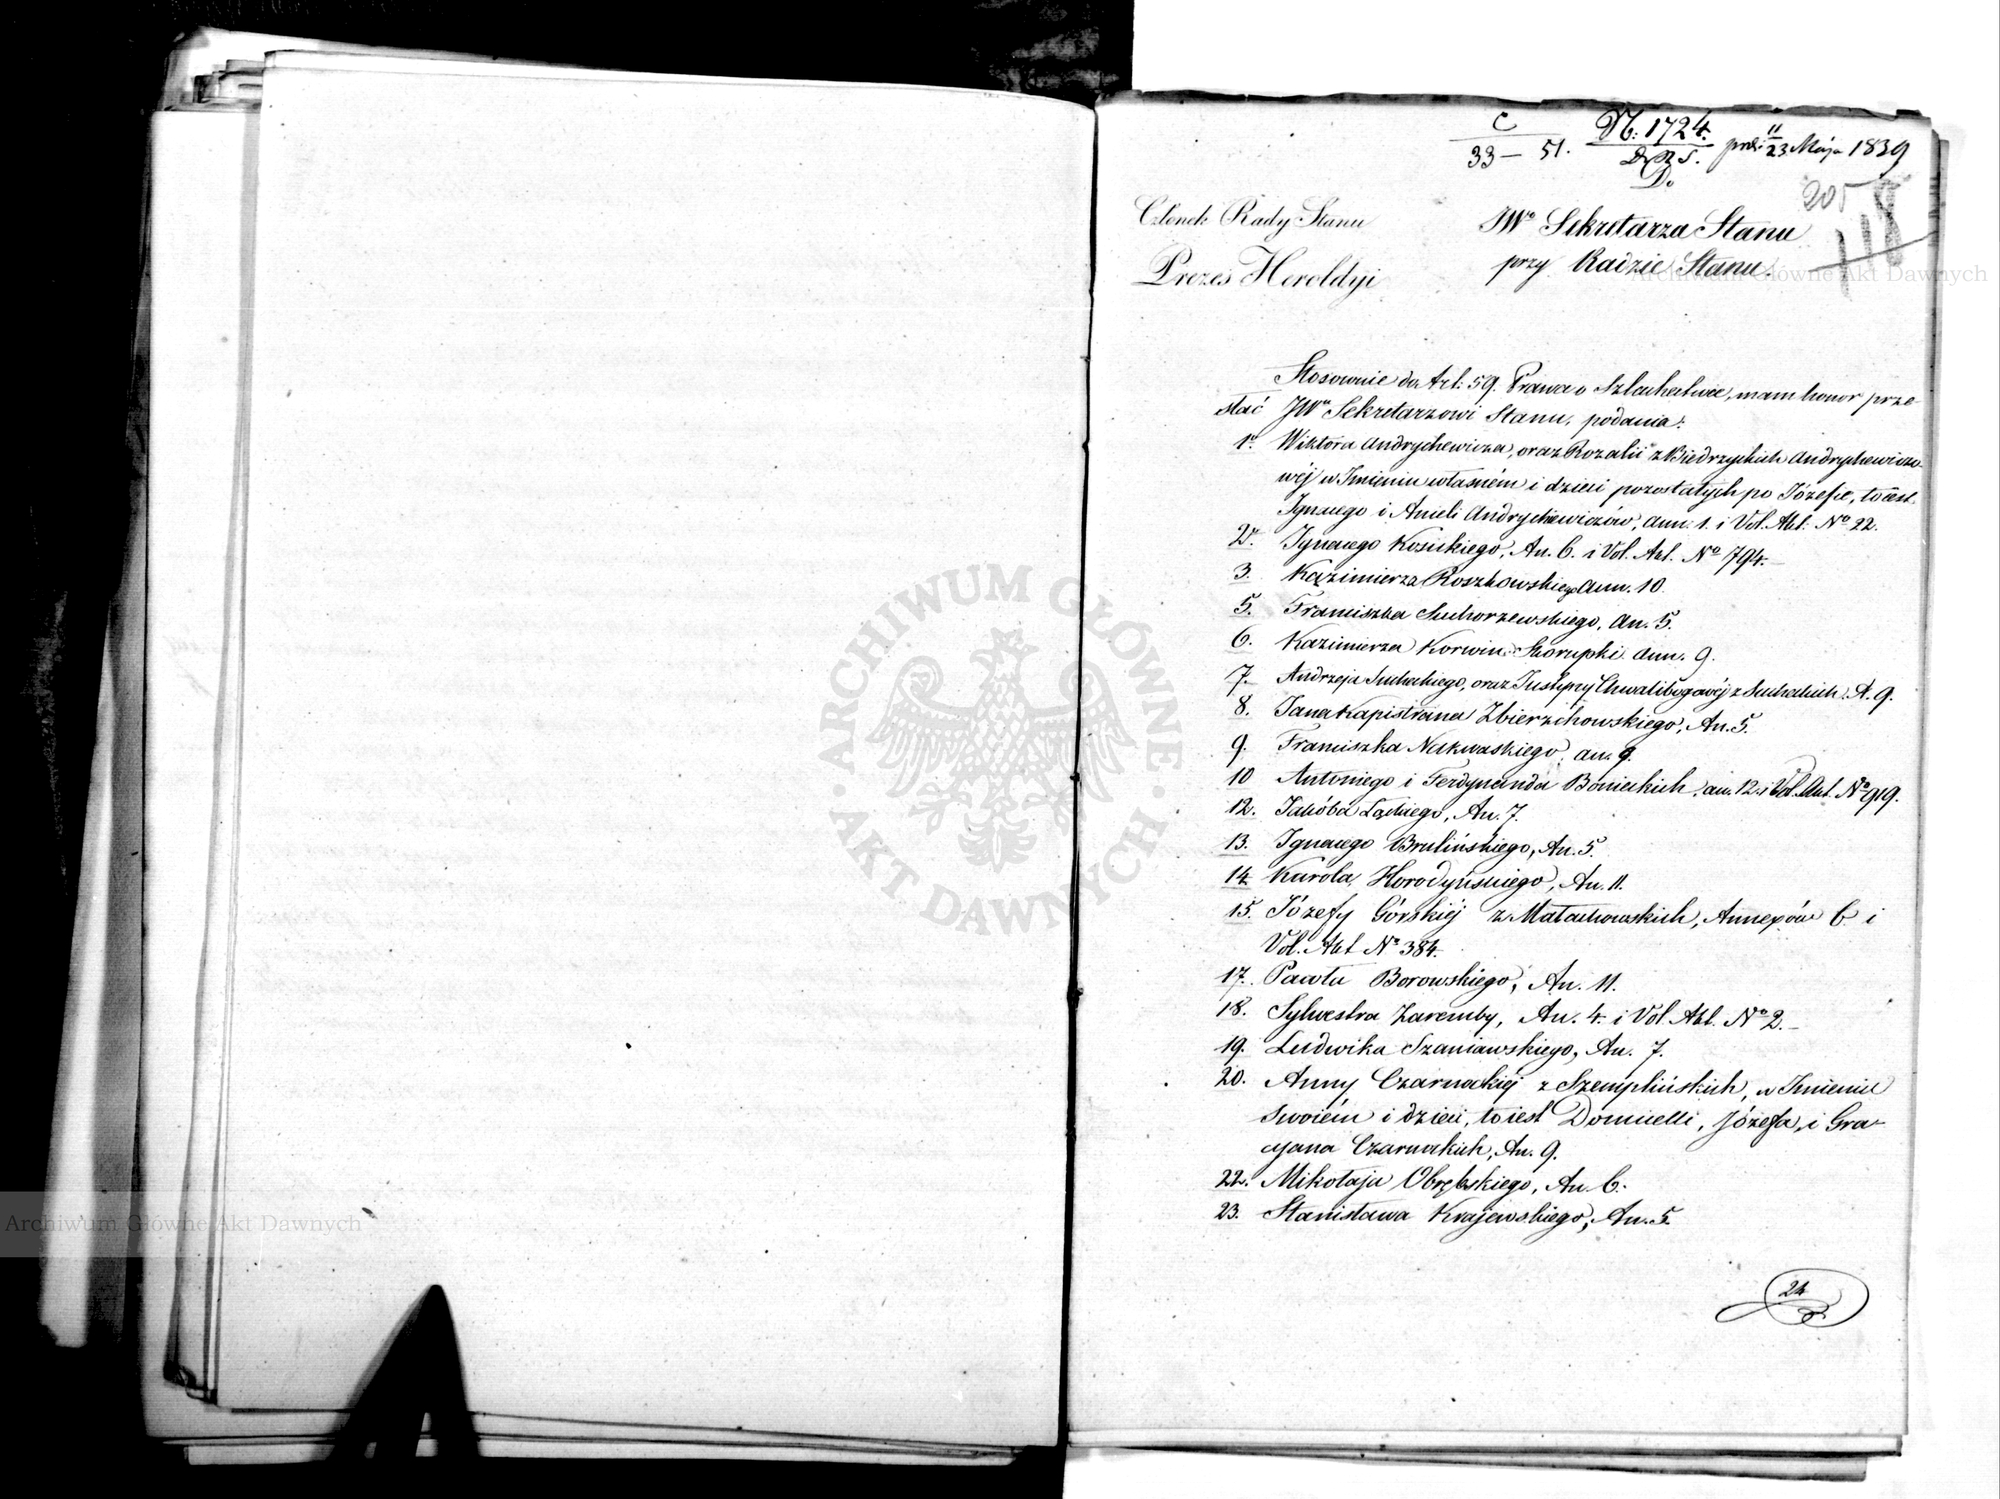 C
33 – 51.
N. 1724.
D. R. S.
11
23 Maja 1839
205
118
Członek Rady Stanu
Prezes Heroldyi
Do
JWo Sekretarza Stanu
przy Radzie Stanu.
Stosownie do Art: 59. Prawa o Szlachectwie, mam honor prze-
słać JWu Sekretarzowi Stanu, podania:
1o Wiktora Andrychewicza, oraz Rozalii z Biedrzyckich Andrychewiczo-
wéj w Imieniu własném i dzieci pozostałych po Józefie, to iest.
Ignacego i Anieli Andrychewiczów, Ann: 1. i Vol. Akt: No 22.
2o Ignacego Kosickiego, An. 6. i Vol. Akt. No 794.
3. Kazimierza Roszkowskiego Ann. 10.
5. Franciszka Suchorzewskiego, An. 5.
6. Kazimierza Korwin Skorupki Ann. 9.
7. Andrzeja Suchckiego, oraz Justyny Chwalibogowéj z Suchckich. A. 9.
8. Jana Kapistrana Zbierzchowskiego, An. 5.
9. Franciszka Nakwaskiego, an. 9.
10 Antoniego i Ferdynanda Bonieckich, an. 12. i Vol. Akt. No 919.
12. Jakóba Łąckiego, An. 7.
13. Ignacego Brulińskiego, An. 5.
14. Karola Horodyńskiego, An. 11.
15. Józefy Górskiéj z Małachowskich, Annexów 6 i
Vol. Akt No 384.
17. Pawła Borowskiego, An. 11.
18. Sylwestra Zaremby, An. 4. i Vol. Akt. No 2.
19. Ludwika Szaniawskiego, An. 7.
20. Anny Czarnockiéj z Szemplińskich, w Imieniu
swoiém i dzieci, to iest Domicelli, Józefa, i Gra-
cyana Czarnockich, An. 9.
22. Mikołaja Obrębskiego, An. 6.
23. Stanisława Krajewskiego, An. 5.
24
ARCHIWUM GŁÓWNE AKT DAWNYCH
Archiwum Główne Akt Dawnych
Archiwum Główne Akt Dawnych